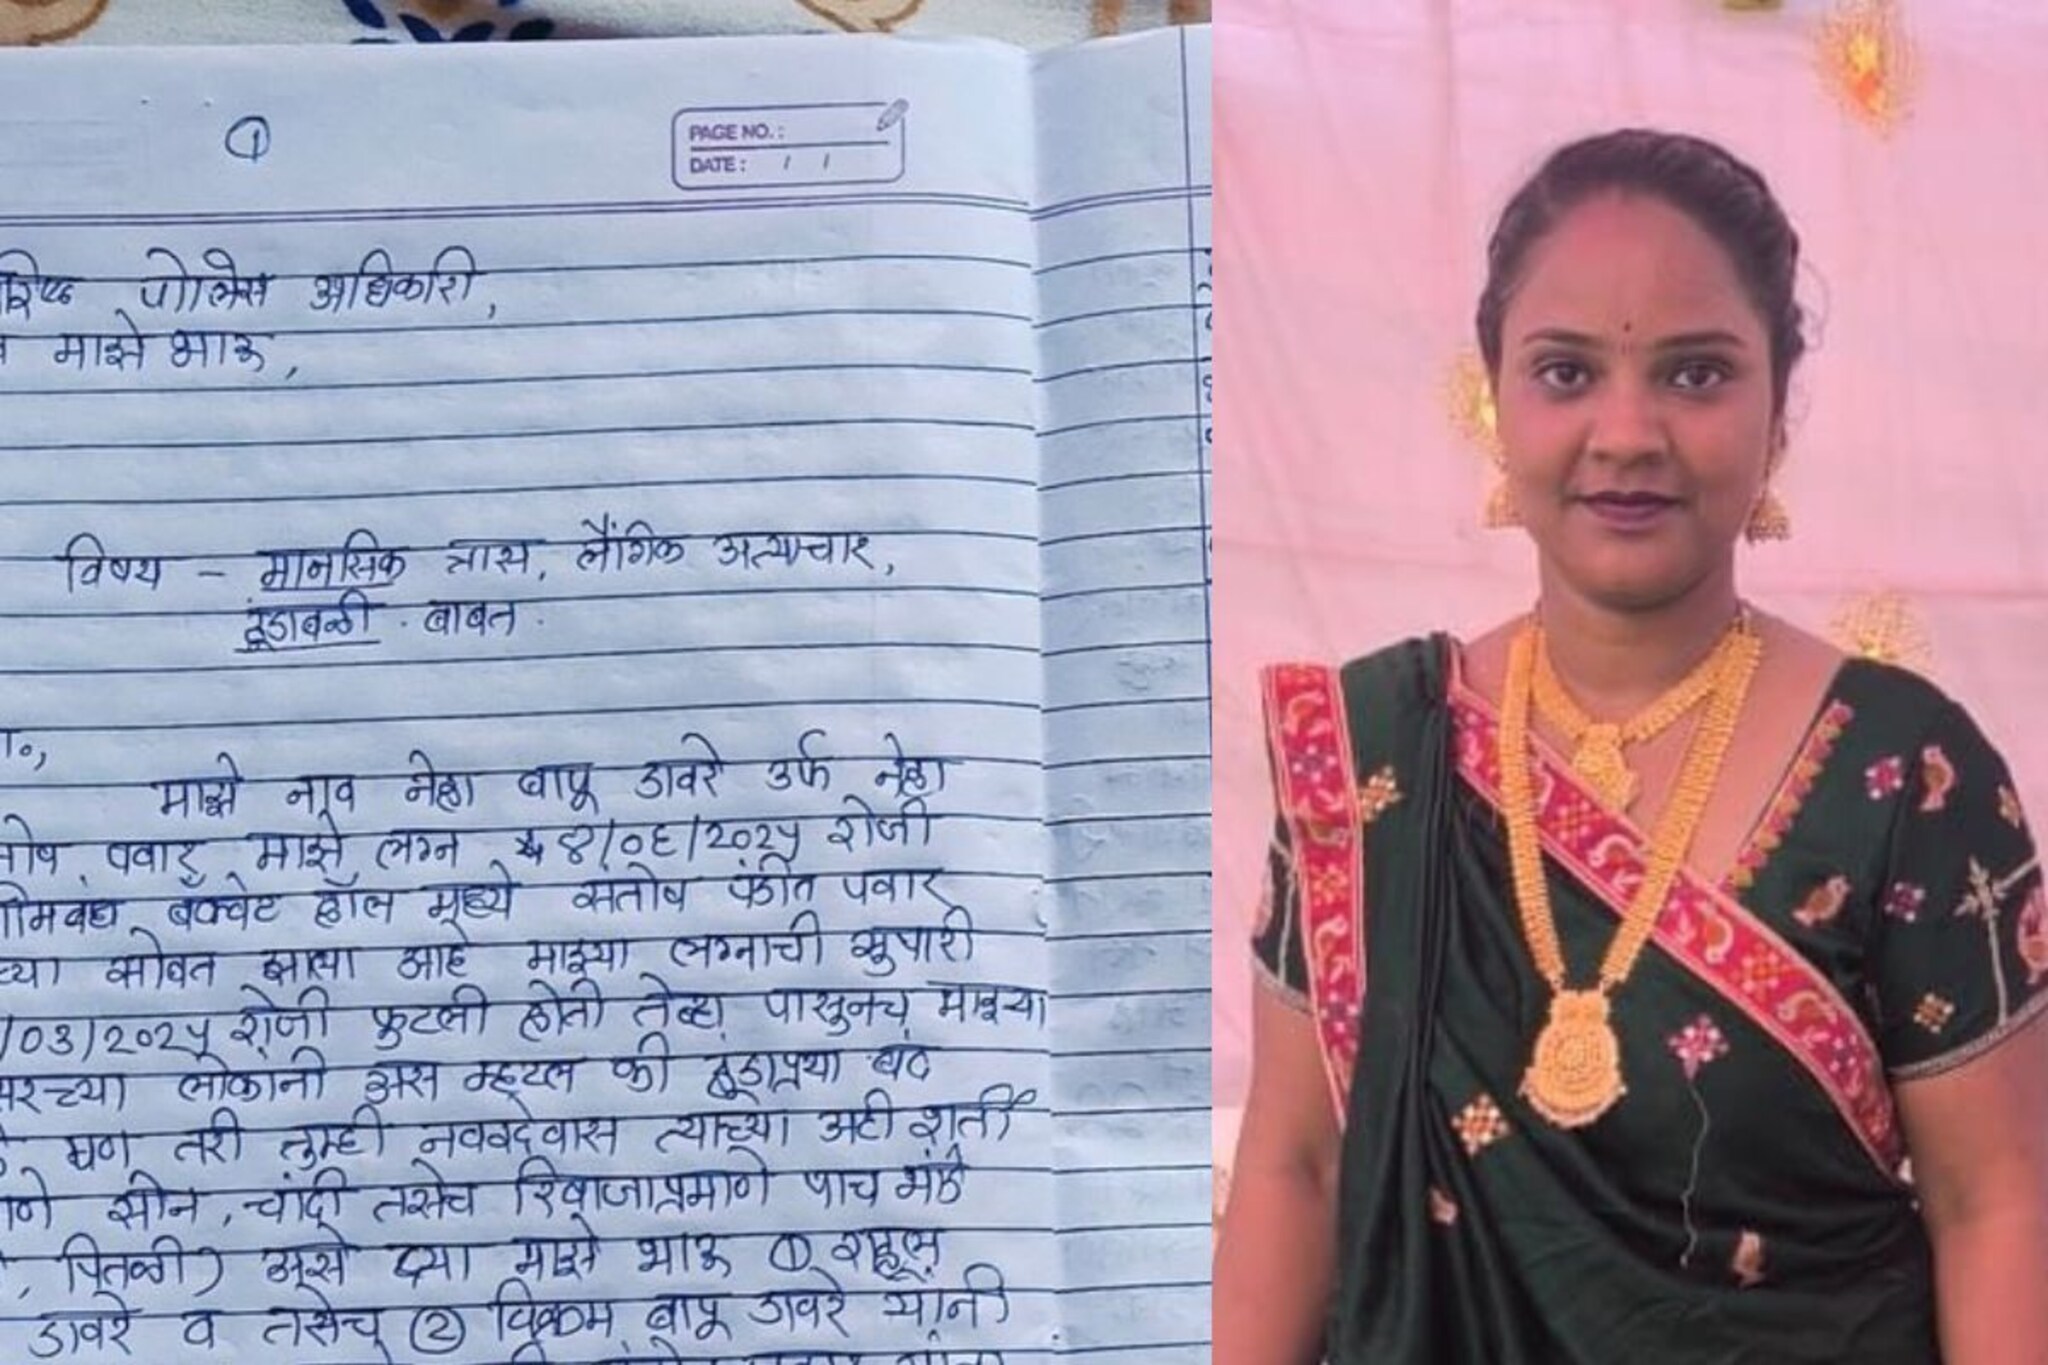 ①
PAGE NO.:
DATE: / /
पोलिस अधिकारी,
माझे भाऊ,
विषय - मानसिक त्रास, लैंगिक अत्याचार,
हूंडाबळी. बाबत.
माझे नाव नेहा बापू डावरे उर्फ नेहा
पवार माझे लग्न ४/०६/२०२५ रोजी
बँक्वेट हॉल मध्ये संतोष पंकीत पवार
सोबत झाला आहे माझ्या लग्नाची सुपारी
/०३/२०२५ रोजी फुटली होती तेव्हा पासुनच माझ्या
लोकांनी असं म्हटलं की हूंडाप्रथा बंद
पण तरी तुम्ही नवरदेवास त्याच्या अटी शर्ती
सोन, चांदी तसेच रिवाजाप्रमाणे पाच भांडे
, पितळी) असे द्या माझे भाऊ ① राहूल
डावरे व तसेच ② विक्रम बापू डावरे यांनी